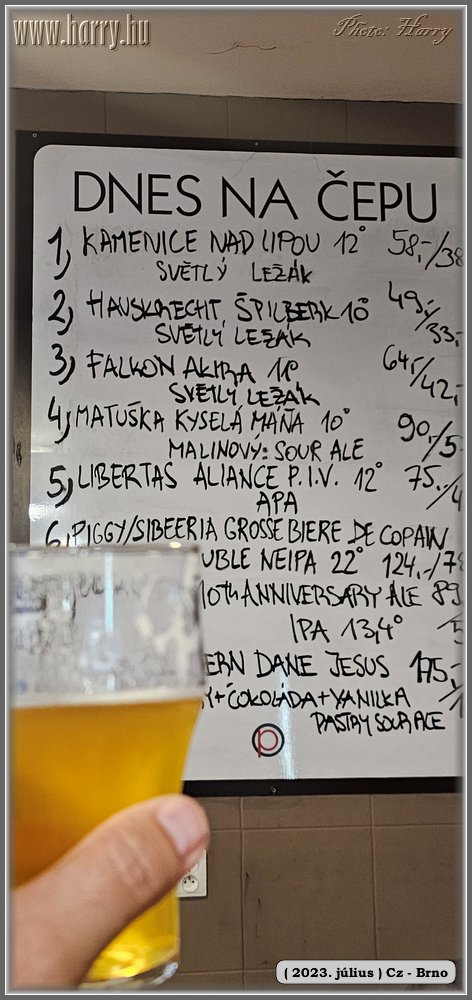 www.harry.hu
Photo: Harry
DNES NA ČEPU
1, KAMENICE NAD LIPOU 12° 58,-/38
SVĚTLÝ LEŽÁK
2, HAUSKRECHT, ŠPILBERK 10° 49,-/33,-
SVĚTLÝ LEŽÁK
3, FALKON AKIRA 11° 64,-/42,-
SVĚTLÝ LEŽÁK
4, MATUŠKA KYSELÁ MÁŇA 10° 90,-/5
MALINOVÝ: SOUR ALE
5, LIBERTAS ALIANCE P.I.V. 12° 75,-/4
APA
6, PIGGY/SIBEERIA GROSSE BIERE DE COPAIN
UBLE NEIPA 22° 124,-/78
10th ANNIVERSARY ALE 89
IPA 13,4° 5
ERN DANE JESUS 175,-
Y+ČOKOLÁDA+VANILKA
PASTRY SOUR ACE
( 2023. július ) Cz - Brno